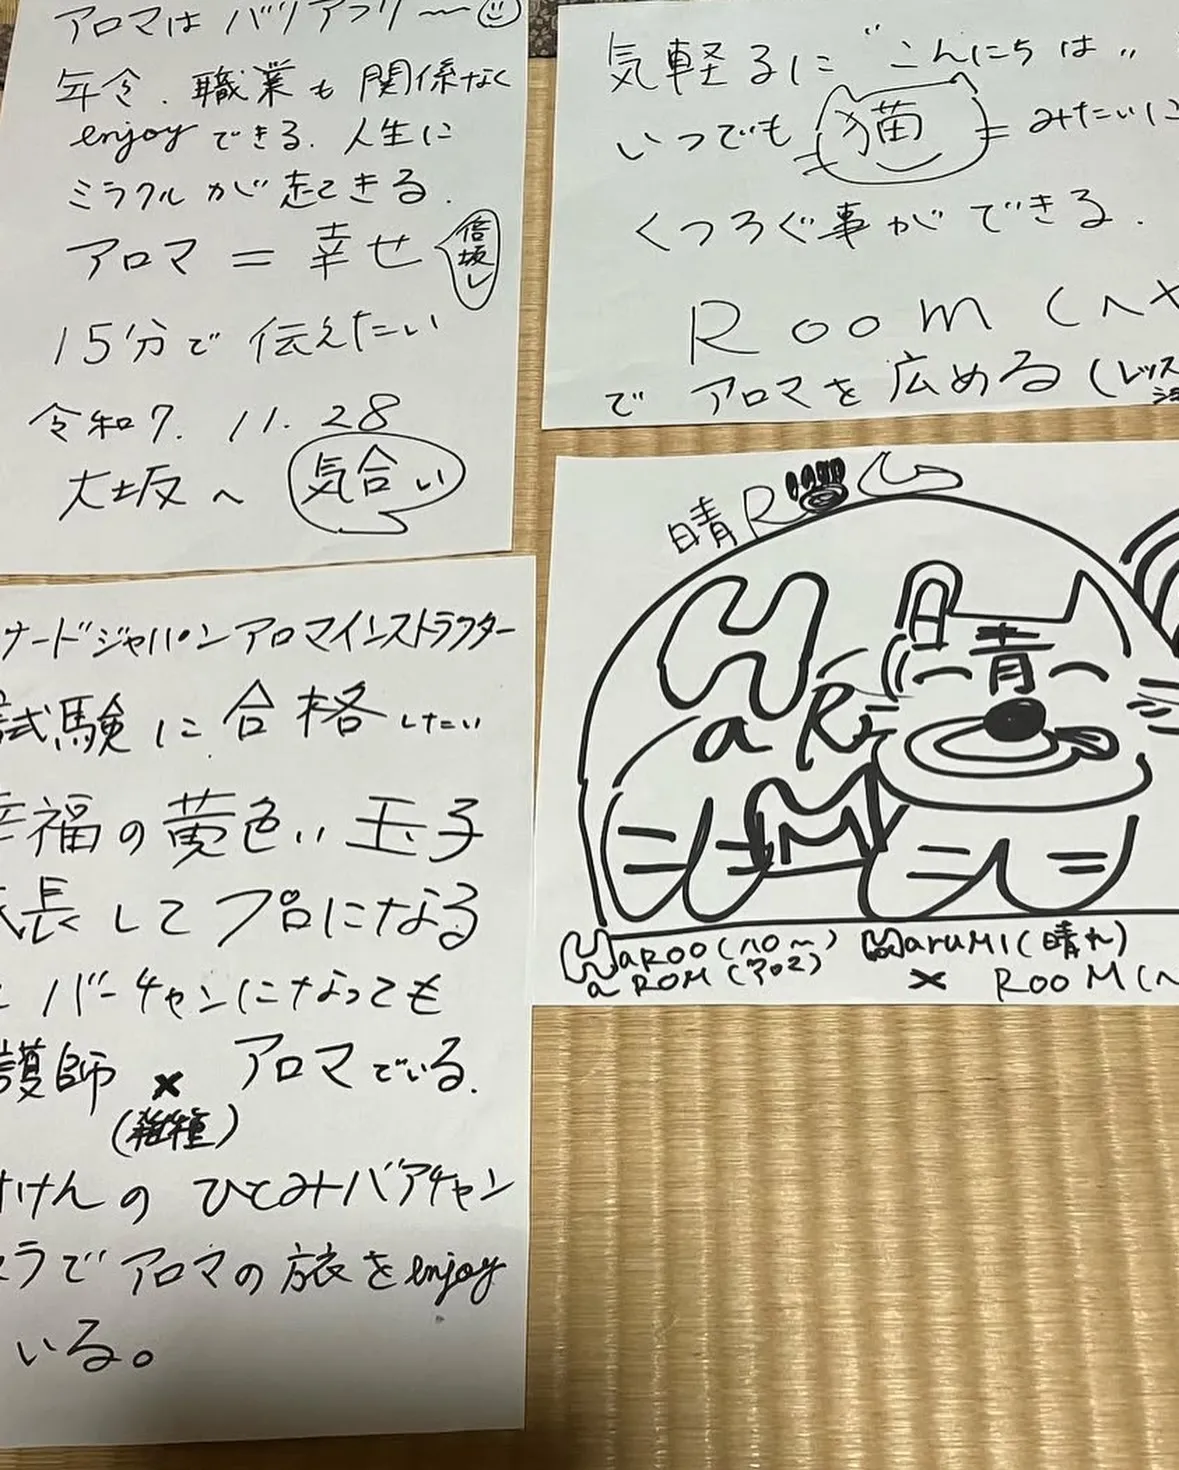 アロマは バリアフリ〜
年令、職業も 関係なく
enjoy できる。人生に
ミラクル が 起こきる。
アロマ = 幸せ
倍返し
15分で 伝えたい
令和7. 11. 28
大坂へ 気合い
気軽るに "こんにちは"
いつでも 猫 みたいに
くつろぐ事が できる.
Room (へや
で アロマを 広める (レッス
ナードジャパン アロマインストラクター
試験に 合格 したい
幸福の黄色い 玉子
長して プロになる
バーチャンになっても
護師 × アロマでいる.
(雑種)
けんの ひとみバアチャン
ラで アロマの 旅を enjoy
いる。
晴 R
HaR
M
晴
HaROO (ハロ〜)
aROM (アロマ)
HaruMI (晴れ)
× ROOM (ヘ